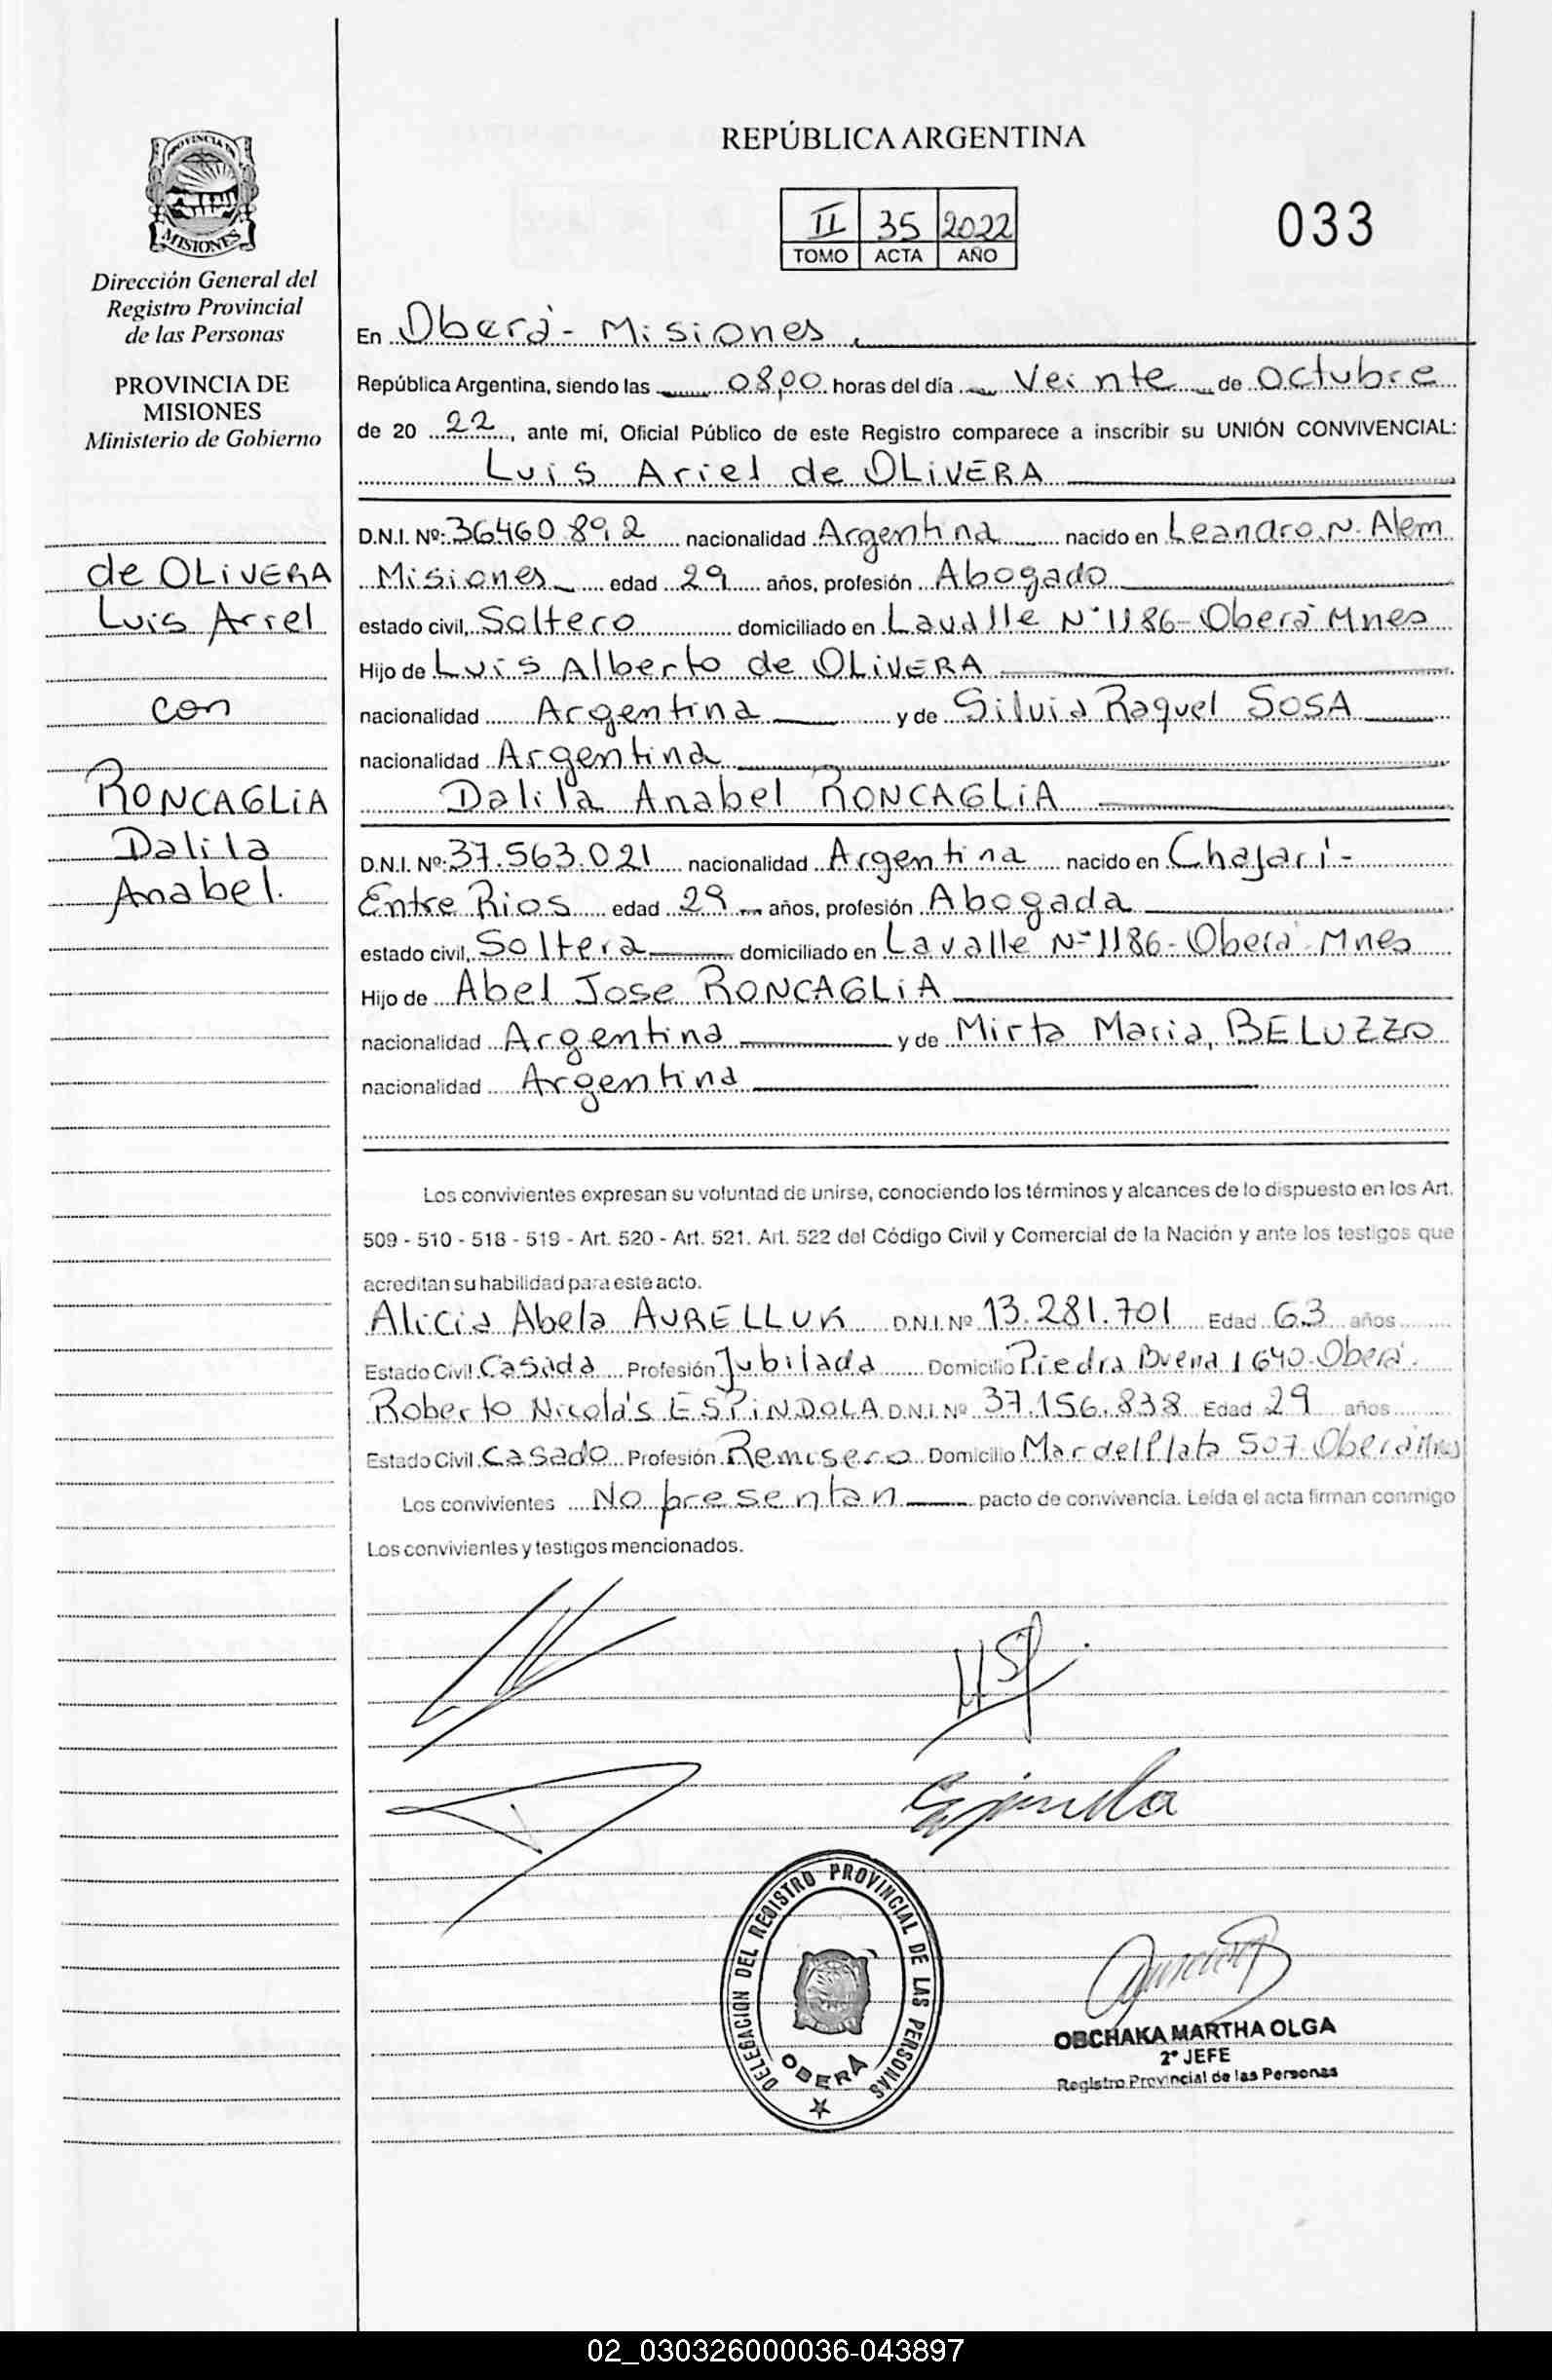 REPÚBLICA ARGENTINA
II 35 2022
TOMO ACTA AÑO
033
PROVINCIA DE
MISIONES
Dirección General del
Registro Provincial
de las Personas
PROVINCIA DE
MISIONES
Ministerio de Gobierno
de OLiVERA
Luis Ariel
con
RONCAGLiA
Dalila
Anabel.
En Oberá - Misiones
República Argentina, siendo las 08,00 horas del día Veinte de Octubre
de 20 22, ante mí, Oficial Público de este Registro comparece a inscribir su UNIÓN CONVIVENCIAL:
Luis Ariel de OLiVERA
D.N.I. Nº: 36.460.892 nacionalidad Argentina nacido en Leandro N. Alem
Misiones edad 29 años, profesión Abogado
estado civil, Soltero domiciliado en Lavalle N° 1186 - Oberá Mnes
Hijo de Luis Alberto de OLiVERA
nacionalidad Argentina y de Silvia Raquel SOSA
nacionalidad Argentina
Dalila Anabel RONCAGLiA
D.N.I. Nº: 37.563.021 nacionalidad Argentina nacido en Chajarí -
Entre Rios edad 29 años, profesión Abogada
estado civil, Soltera domiciliado en Lavalle Nº 1186 - Oberá - Mnes
Hijo de Abel Jose RONCAGLiA
nacionalidad Argentina y de Mirta Maria, BELUZZO
nacionalidad Argentina
Los convivientes expresan su voluntad de unirse, conociendo los términos y alcances de lo dispuesto en los Art.
509 - 510 - 518 - 519 - Art. 520 - Art. 521. Art. 522 del Código Civil y Comercial de la Nación y ante los testigos que
acreditan su habilidad para este acto.
Alicia Abela AURELLUK D.N.I. Nº 13.281.701 Edad 63 años
Estado Civil Casada Profesión Jubilada Domicilio Piedra Buena 1640 - Oberá.
Roberto Nicolás ESPiNDOLA D.N.I. Nº 37.156.838 Edad 29 años
Estado Civil Casado Profesión Remisero Domicilio Mar del Plata 507. Oberá Mnes
Los convivientes No presentan pacto de convivencia. Leída el acta firman conmigo
Los convivientes y testigos mencionados.
DELEGACION DEL REGISTRO PROVINCIAL DE LAS PERSONAS
OBERÁ
OBCHAKA MARTHA OLGA
2° JEFE
Registro Provincial de las Personas
02_030326000036-043897